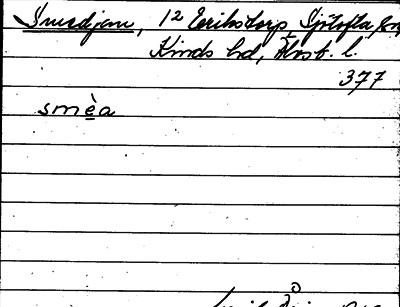 Smedjan, 12 Eerikstorp, Sjötofta sn,
Kinds hd, Älvsb. l.
377
smèa